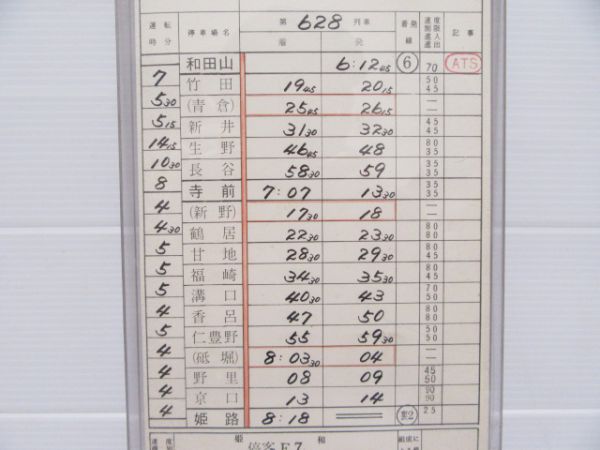 運転時分 停車場名 第 628 列車 着 発 着発線 速度制限 進入 進出 記事
和田山 6:12 45 ⑥ 70 ATS
7 竹田 19 45 20 15 50 45
5 30 (青倉) 25 45 26 15 — —
5 15 新井 31 30 32 30 45 45
14 15 生野 46 45 48 80 35
10 30 長谷 58 30 59 35 35
8 寺前 7:07 13 30 35 35
4 (新野) 17 30 18 — —
4 30 鶴居 22 30 23 30 80 80
5 甘地 28 30 29 30 80 45
5 福崎 34 30 35 30 80 45
5 溝口 40 30 43 70 50
4 香呂 47 50 80 80
5 仁豊野 55 59 30 50 50
4 (砥堀) 8:03 30 04 — —
4 野里 08 09 45 50
4 京口 13 14 90 90
4 姫路 8:18 裏2 25
速度 姫 和
停客F7